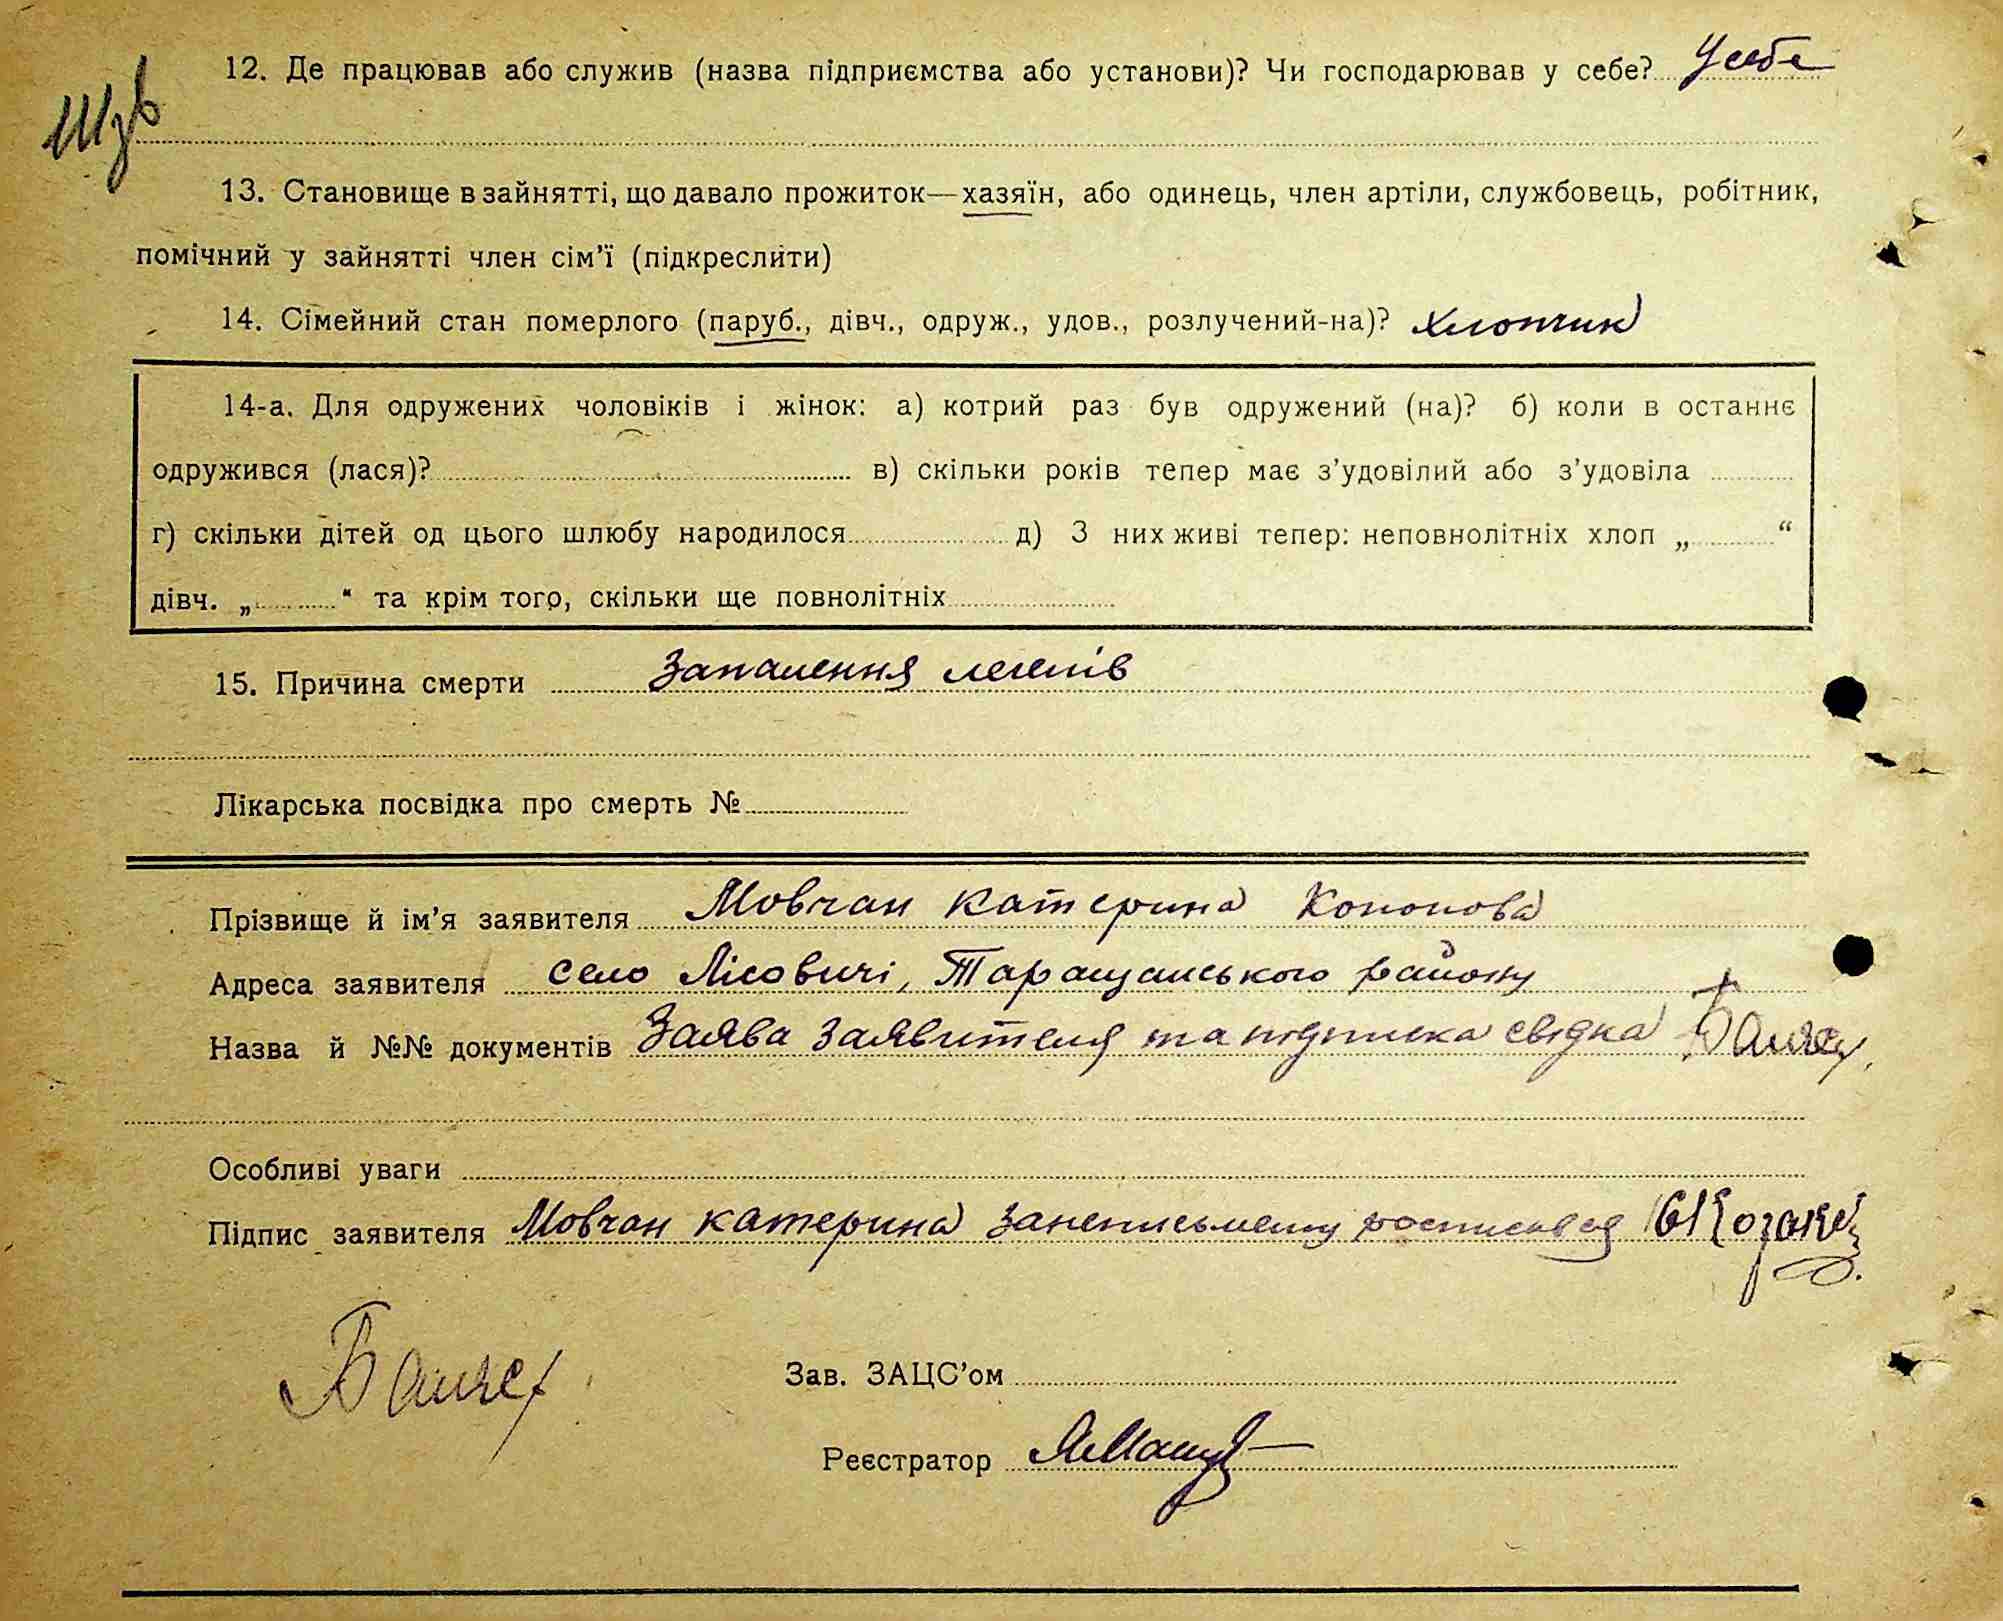 12. Де працював або служив (назва підприємства або установи)? Чи господарював у себе? У себе
13. Становище в зайнятті, що давало прожиток—хазяїн, або одинець, член артіли, службовець, робітник,
помічний у зайнятті член сім’ї (підкреслити)
14. Сімейний стан померлого (паруб., дівч., одруж., удов., розлучений-на)? хлопчик
14-а. Для одружених чоловіків і жінок: а) котрий раз був одружений (на)? б) коли в останнє
одружився (лася)? в) скільки років тепер має з’удовілий або з’удовіла
г) скільки дітей од цього шлюбу народилося д) З них живі тепер: неповнолітніх хлоп „ “
дівч. „ “ та крім того, скільки ще повнолітніх
15. Причина смерти Запалення легенів
Лікарська посвідка про смерть №
Прізвище й ім’я заявителя Мовчан Катерина Кононова
Адреса заявителя село Лісовичі, Таращанського району
Назва й №№ документів Заява заявителя та підписка свідка
Особливі уваги
Підпис заявителя Мовчан Катерина за неписьмену росписався
Зав. ЗАЦС’ом
Реєстратор